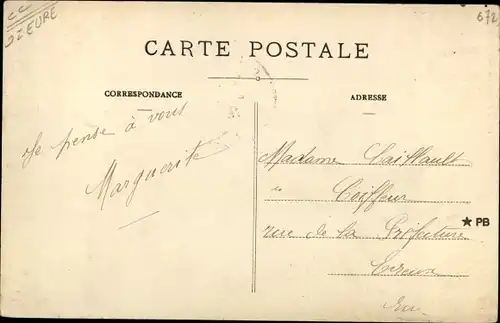 CC
27 EURE
672
CARTE POSTALE
CORRESPONDANCE
ADRESSE
Je pense à vous
Marguerite
Madame Caiffault
Coiffeur
rue de la Préfecture
★ PB
Evreux